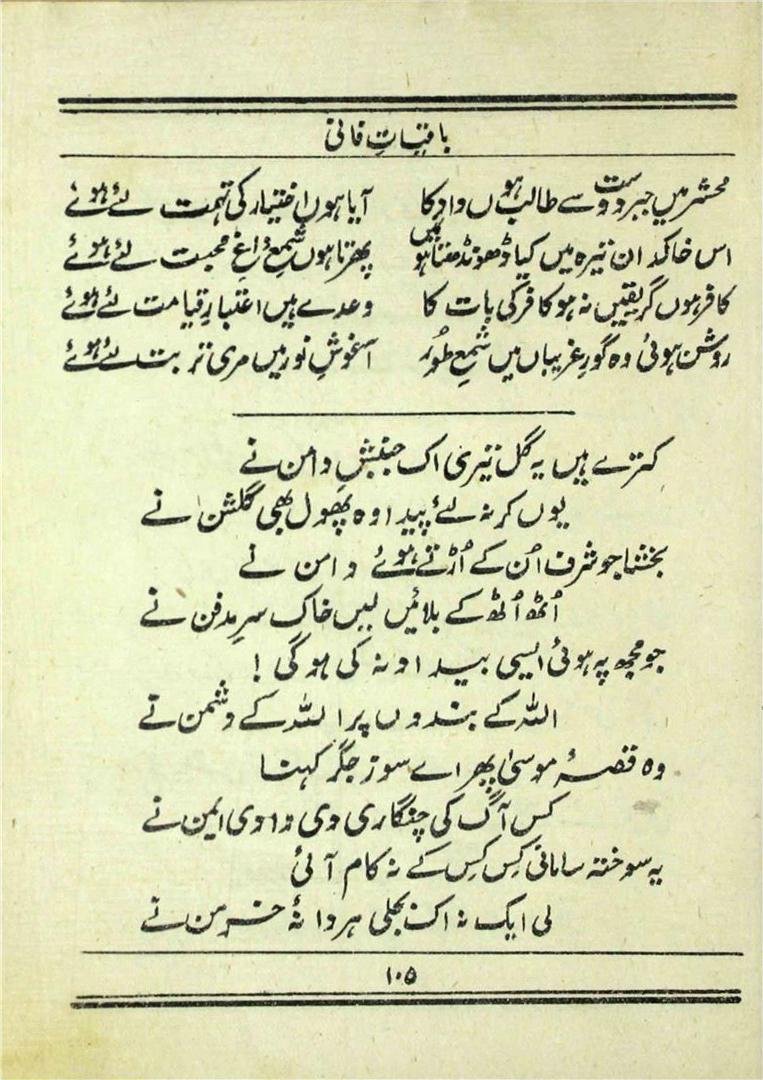 باقیاتِ فانی
محشر میں جبرِ دوست سے طالب ہوں داد کا آیا ہوں اختیار کی تہمت لئے ہوئے
اس خاکدانِ تیرہ میں کیا ڈھونڈھتا ہوں میں پھرتا ہوں شمعِ داغِ محبت لئے ہوئے
کافر ہوں گر یقیں نہ ہو کافر کی بات کا وعدے ہیں اعتبارِ قیامت لئے ہوئے
روشن ہوئی وہ گورِ غریباں میں شمعِ طُور آغوشِ نور میں مری تربت لئے ہوئے
کترے ہیں یہ گل تیری اک جنبشِ دامن نے
یوں کر نہ لئے پیدا وہ پھول بھی گلشن نے
بخشا جو شرف اُن کے اُڑتے ہوئے دامن نے
اُٹھ اُٹھ کے بلائیں لیں خاکِ سرِ مدفن نے
جو مجھ پہ ہوئی ایسی بیداد نہ کی ہوگی!
اللہ کے بندوں پر اللہ کے دشمن نے
وہ قصۂ موسیٰ پھر اے سوزِ جگر کہنا
کس آگ کی چنگاری دی وادیِ ایمن نے
یہ سوختہ سامانی کِس کِس کے نہ کام آئی
لی ایک نہ اک بجلی ہر دانۂ خرمن نے
۱۰۵